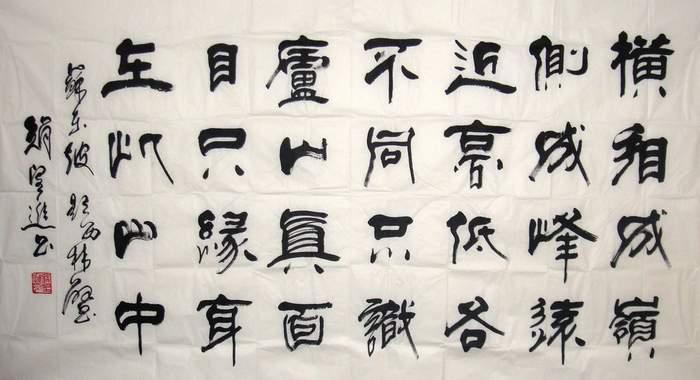 橫看成嶺
側成峰遠
近高低各
不同只識
廬山眞面
目只緣身
在此山中
蘇東坡題西林壁
趙望進书